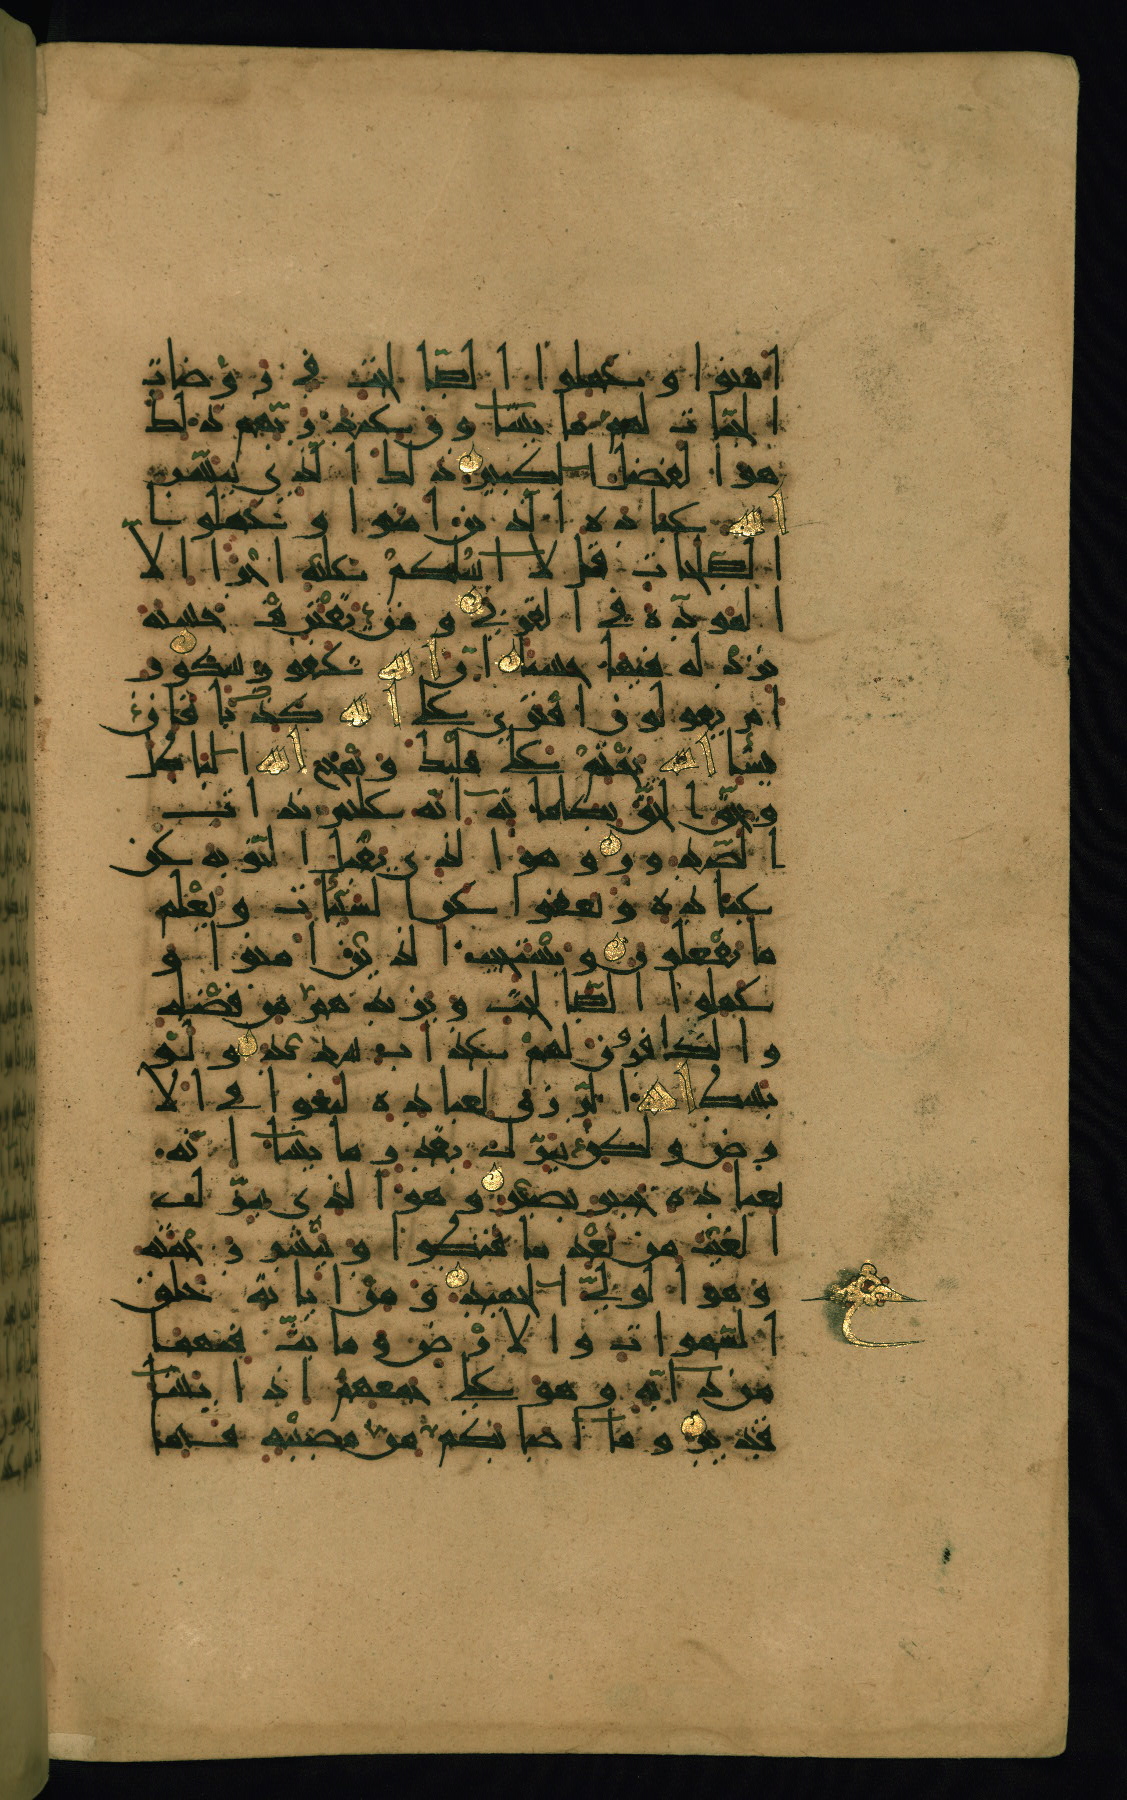 امنوا وعملوا الصّالحت في رَوْضات
الجنّات لهم ما يشآون عند ربّهم ذلك
هو الفضل الكبير ذلك الّذي يبشّر
الله عباده الّذين امنوا وعملوا
الصّالحات قل لآ اسْئلكمْ عليْه اجْرا الا
المودّة في القرْبى ومن يقْترفْ حسنة
نزدْ له فيها حسنا انّ الله غفور شكور
ام يقولون افْترى على الله كذبا فان
يشأ الله يخْتمْ على قلْبك ويمْح الله الباطل
ويحقّ الحقّ بكلماته انّه عليم بذات
الصّدور وهو الذي يقْبل التّوْبة عنْ
عباده ويعفوا عن السّيّئات ويعْلم
ما تفْعلون ويسْتجيب الذين امنوا و
عملوا الصّالحت ويزيدهمْ من فضْله
والكافرون لهمْ عذاب شديد ولوْ
بسط الله الرّزق لعباده لبغوا في الا
رض ولكن ينزّل بقدر ما يشآ انّه
بعباده خبير بصير وهو الذي ينزّل
الغيْث من بعْد ما قنطوا وينْشر رحْمته
وهو الوليّ الحميد ومنْ اياته خلق
السّموات والارْض وما بثّ فيهما
من دآبّة وهو على جمعهمْ اذا يشآ
قدير ومآ اصابكم من مصيبة فبما